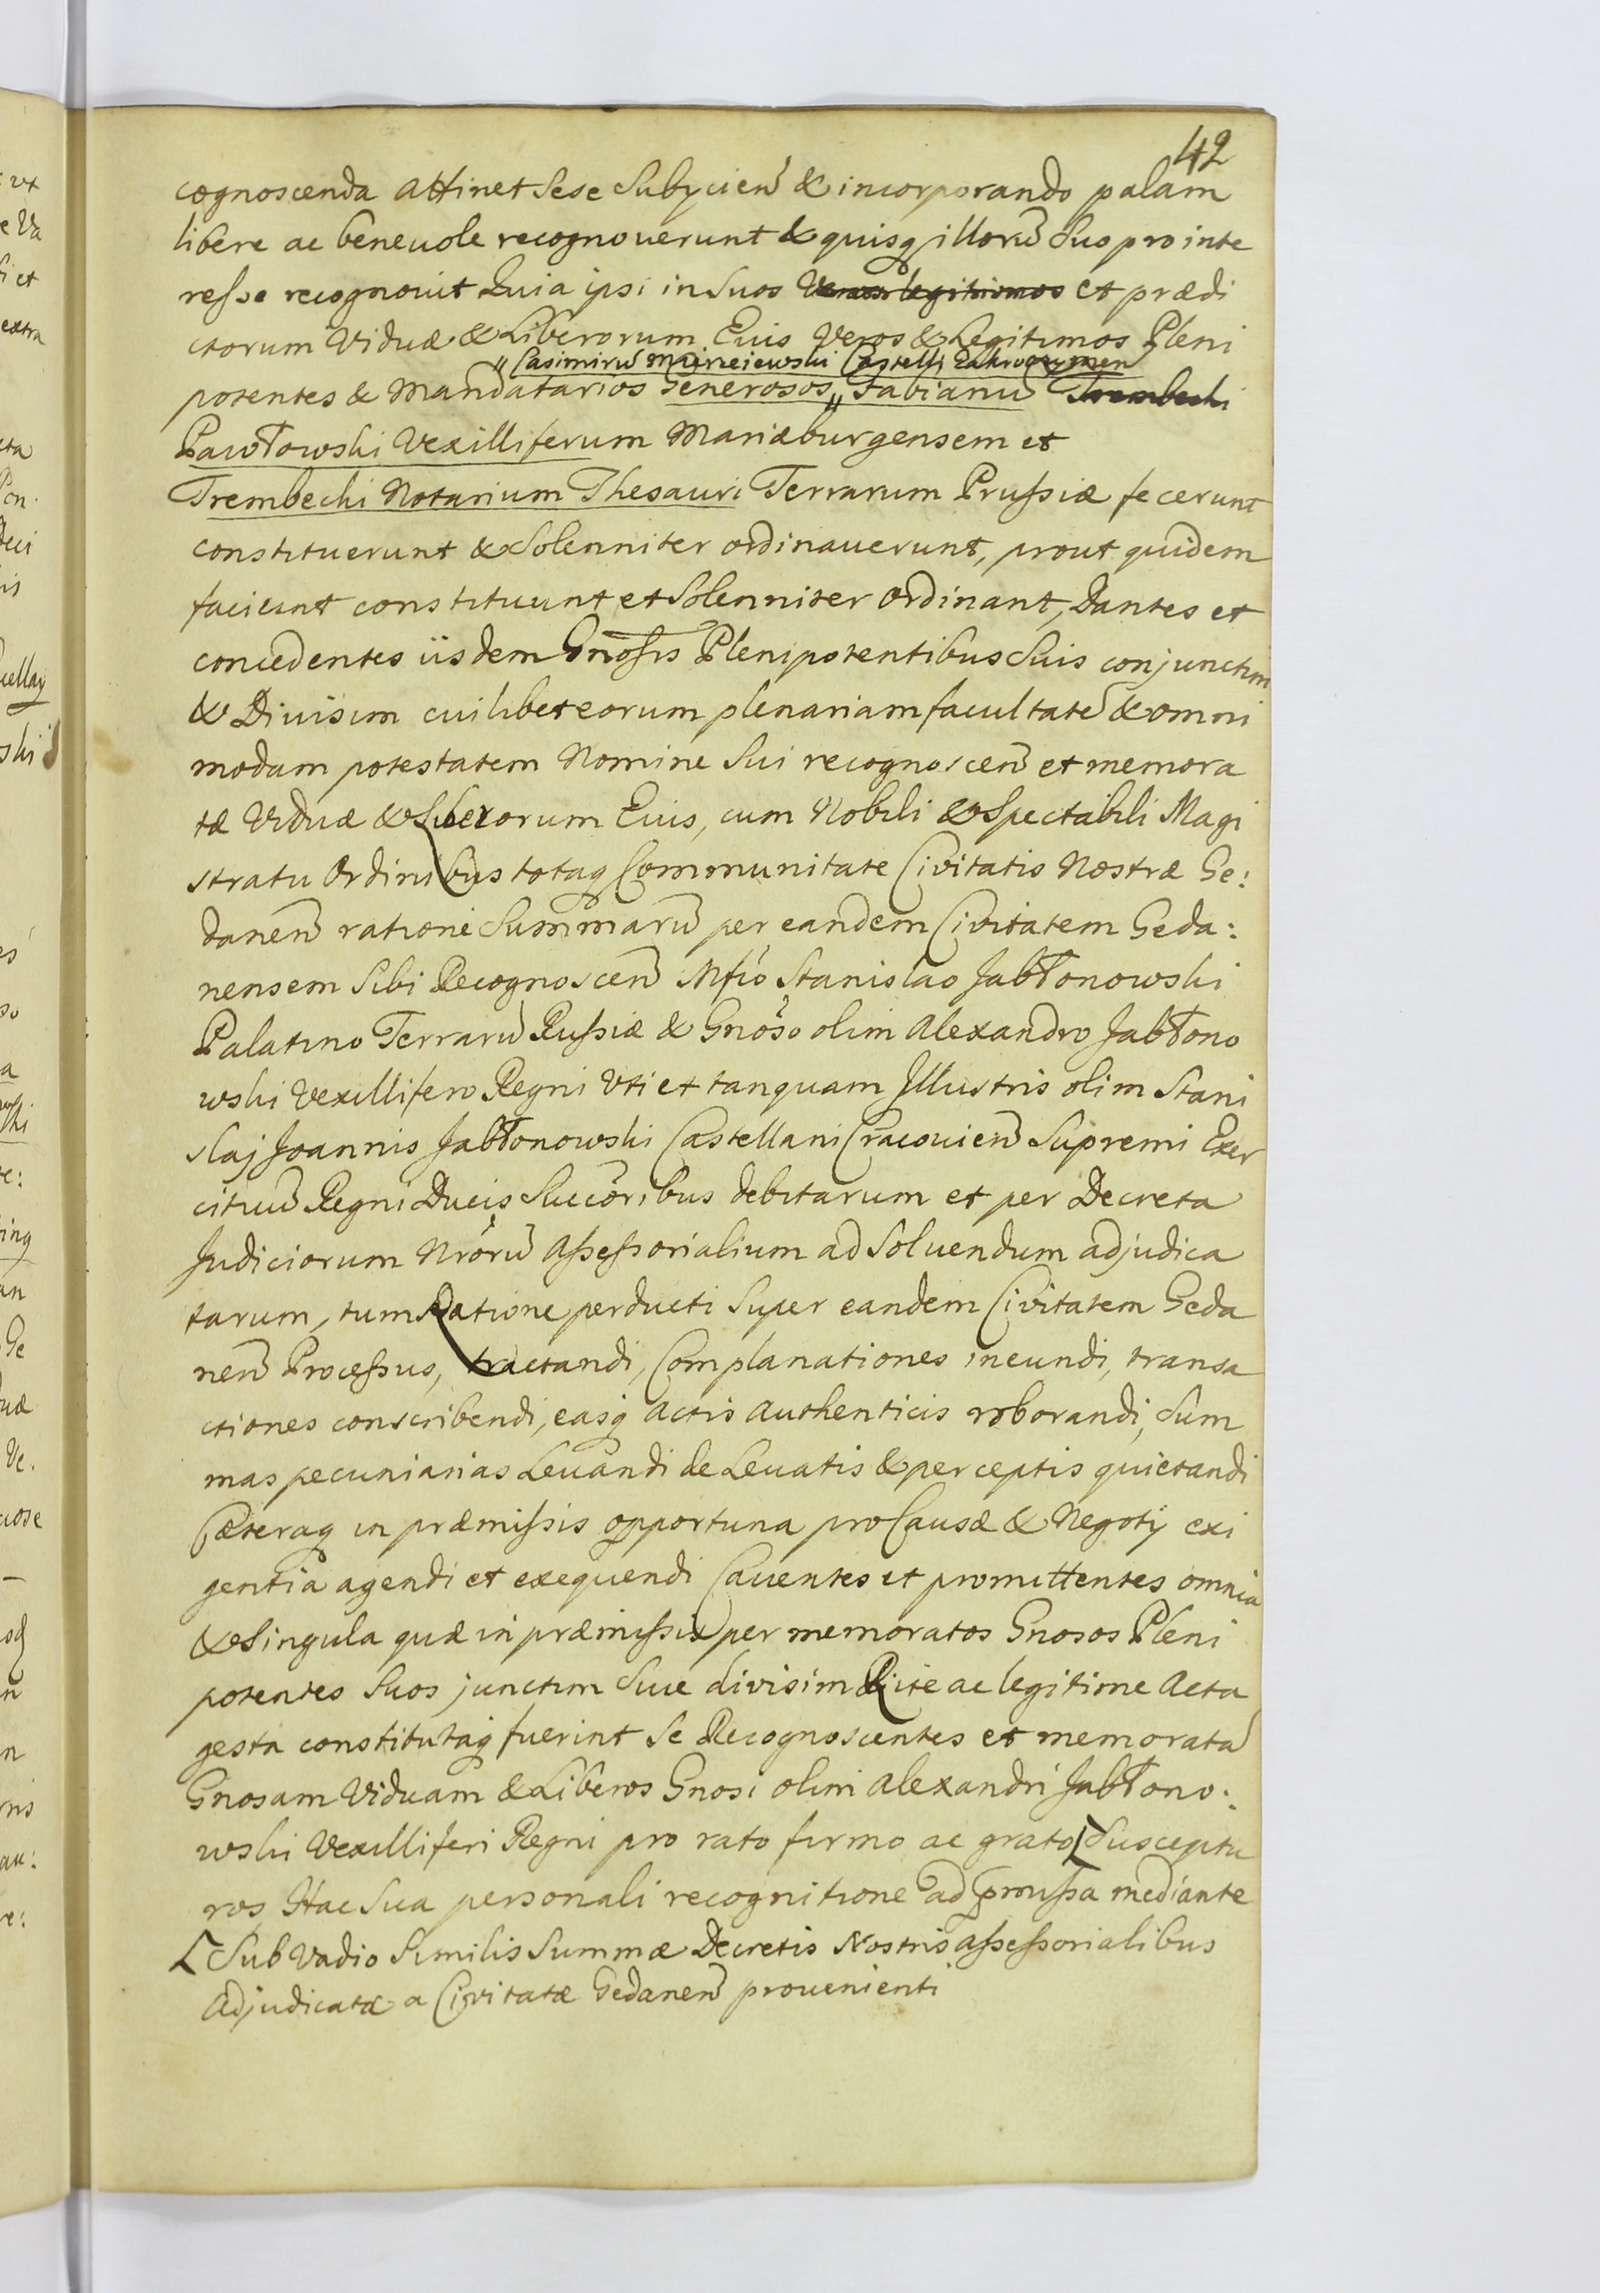 42
cognoscenda attinet sese subijcień & incorporando palam
libere ac beneuole recognouerunt & quisq illorū suo pro inte
resse recognouit Quia ipsi in suos Veros legitimos et prædi
ctorum Viduæ & Liberorum Eius Veros & Legitimos Pleni
" Casimirū Macieiewski Castell. Zakroczymen
potentes & Mandatarios Generosos " Fabianū Trembecki
Pawłowski Vexilliferum Mariæburgensem et
Trembecki Notarium Thesauri Terrarum Prussiæ fecerunt
constituerunt & Solenniter ordinauerunt, prout quidem
faciunt constituunt et Solenniter Ordinant, Dantes et
concedentes iisdem Gnosis Plenipotentibus Suis conjunctim
& Diuisim cuilibet eorum plenariam facultatē & omni
modam potestatem Nomine Sui recognosceñ et memora
tæ Viduæ & Liberorum Eius, cum Nobili & Spectabili Magi
stratu Ordinibus totaq Communitate Civitatis Nostræ Ge:
daneñ ratione Summarū per eandem Civitatem Geda:
nensem Sibi Recognosceñ Mfco Stanislao Jabłonowski
Palatino Terrarū Russiæ & Gnoso olim Alexandro Jabłono
wski Vexillifero Regni Uti et tanquam Illustris olim Stani
slaj Joannis Jabłonowski Castellani Cracouień Supremi Exer
cituū Regni Ducis Succoribus debitarum et per Decreta
Judiciorum Nrorū Assessorialium ad Soluendum adjudica
tarum, tum Ratione perducti super eandem Civitatem Geda
neñ Processus, tractandi, Complanationes ineundi, transa
ctiones conscribendi, easq Actis Authenticis roborandi, Sum
mas pecuniarias Leuandi de Leuatis & perceptis quietandi
Cæteraq in præmissis opportuna pro Causæ & Negotij exi
gentia agendi et exequendi Cauentes et promittentes omnia
& Singula quæ in præmissis per memoratos Gnosos Pleni
potentes Suos junctim Siue divisim Rite ac legitime Acta
gesta constitutaq fuerint Se Recognoscentes et memoratā
Gnosam Viduam & Liberos Gnosi olim Alexandri Jabłono:
wski Vexilliferi Regni pro rato firmo ac grato [ Susceptu
ros Hac Sua personali recognitione ad præmissa mediante
[ Sub Vadio Similis Summæ Decretis Nostris Assessorialibus
Adjudicatæ a Civitatæ Gedaneñ prouenienti